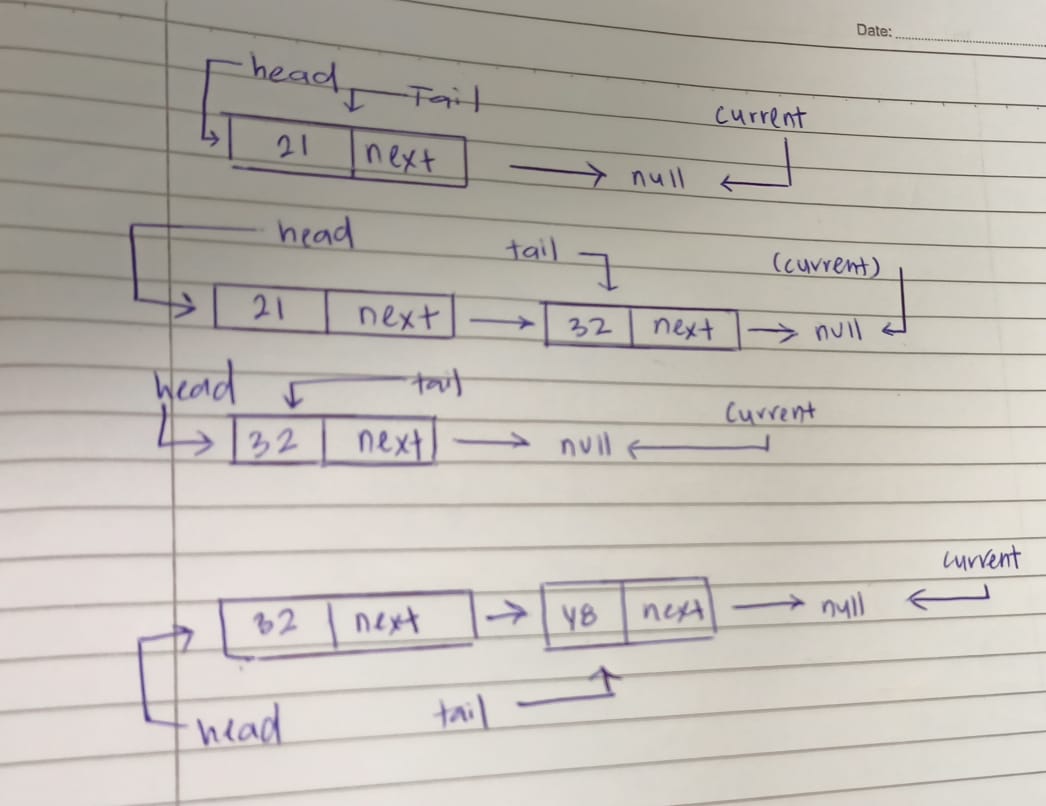 Date:
head Tail
current
21 next null
head tail (current)
21 next 32 next null
head tail
current
32 next null
current
32 next 48 next null
tail
head